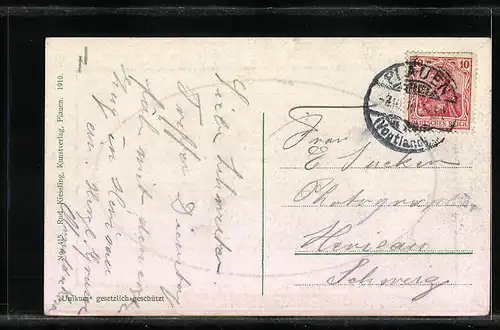 Liebe Schwester
Treffe Dienstag
früh mit dem ersten
Zug in Herisau
ein. Herzl. Grüsse
No. 415 Rud. Kiessling, Kunstverlag, Plauen. 1910.
„Unikum“ gesetzlich geschützt
PLAUEN
(Vogtland)
10
DEUTSCHES REICH
Frau
Photograph
Herisau
Schweiz